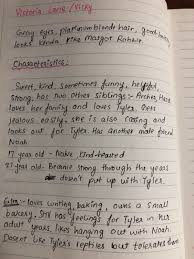 Victoria Lane/Vicky
Grey eyes, platinumblonde hair, good-
looks kinda like Margot Robbie.
Characteristics:-
Sweet, kind, sometimes funny, helpful,
strong, has two other siblings:- Archer,
loves her family and loves Tyler. Gets
jealous easily, she is also caring and
looks out for Tyler. Has another male friend
Noah.
17 year old - Naive, Kind-hearted
21 year old- Became strong through the years
doesn't put up with Tyler.
Extra:- loves writing, baking, owns a small
bakery, Still has feelings for Tyler in her
adult years, likes hanging out with Noah.
Doesnt like Tyler's reptiles but tolerates them